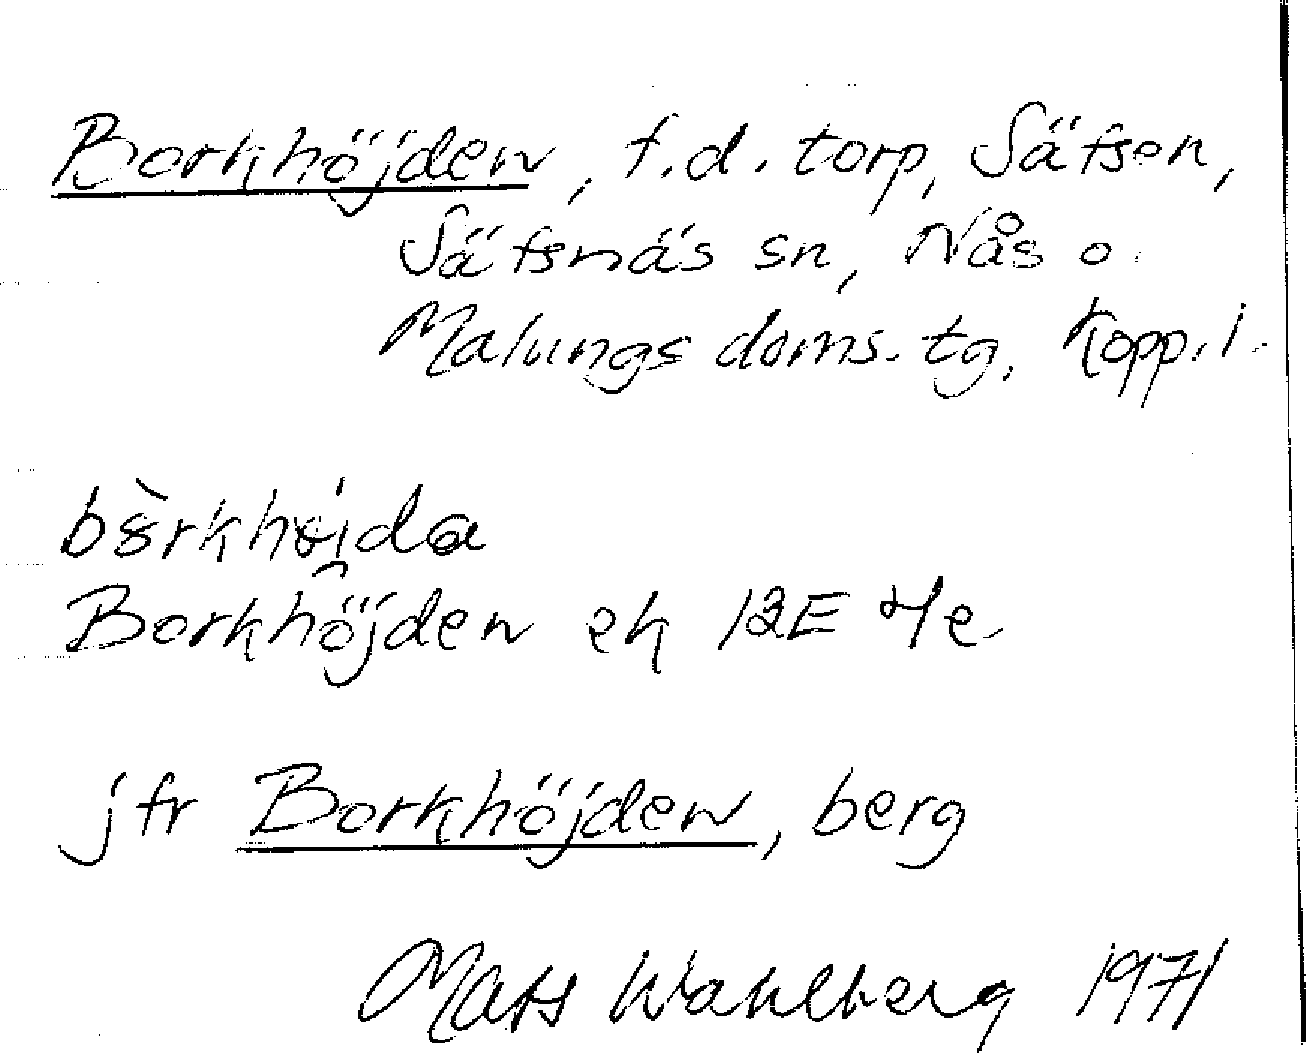 Borkhöjden, f.d. torp, Säfsen,
Säfsnäs sn, Nås o.
Malungs doms. tg, Kopp. l.
Borkhöjden ek 12E 4e
jfr Borkhöjden, berg
Mats Wahlberg 1971